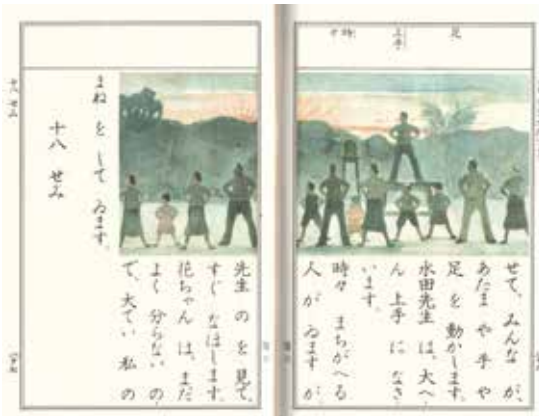 足
上手
時々
せて、みんな が、
あたま や 手 や
足 を 動かします。
水田先生 は、大へ
ん 上手 に なさ
います。
時々 まちがへる
人 が ゐます が
先生 の を 見て、
すぐ なほします。
花ちゃん は、まだ
よく 分らない の
で、大てい 私 の
まね を して ゐます。
十八 せみ